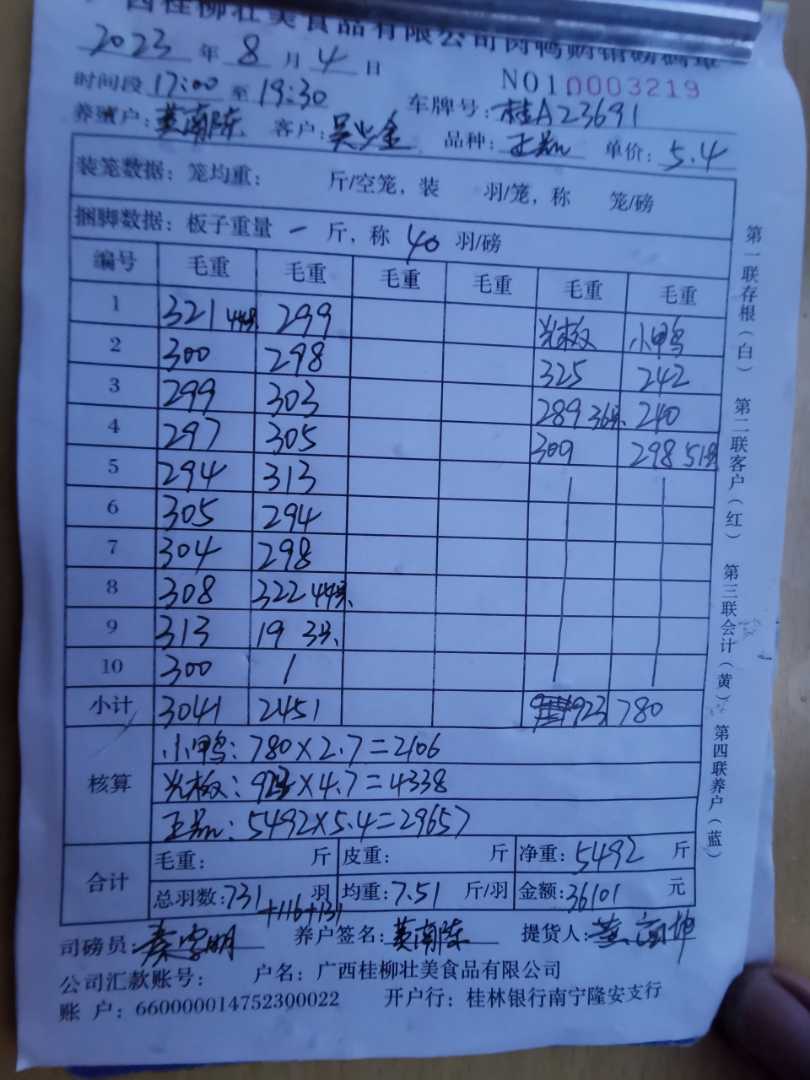 西桂柳壮美食品有限公司肉鸭购销磅码单
2023 年 8 月 4 日
NO10003219
时间段 17:00 至 19:30 车牌号: 桂A23691
养殖户: 黄南陈 客户: 吴 金 品种: 正 单价: 5.4
装笼数据: 笼均重: 斤/空笼, 装 羽/笼, 称 笼/磅
捆脚数据: 板子重量 一 斤, 称 40 羽/磅
编号 毛重 毛重 毛重 毛重 毛重 毛重
1 321 44只 299 光板 小鸭
2 300 298 325 242
3 299 303 289 36只 240
4 297 305 309 298 51只
5 294 313
6 305 294
7 304 298
8 308 322 44只
9 313 19 3只
10 300 /
小计 3041 2451 923 780
核算
小鸭: 780×2.7=2106
光板: 923×4.7=4338
正 : 5492×5.4=29657
合计
毛重: 斤 皮重: 斤 净重: 5492 斤
总羽数: 731 羽 均重: 7.51 斤/羽 金额: 36101 元
+116+131
司磅员: 秦 明 养户签名: 黄南陈 提货人: 黄
公司汇款账号: 户名: 广西桂柳壮美食品有限公司
账 户: 660000014752300022 开户行: 桂林银行南宁隆安支行
第一联存根(白) 第二联客户(红) 第三联会计(黄) 第四联养户(蓝)